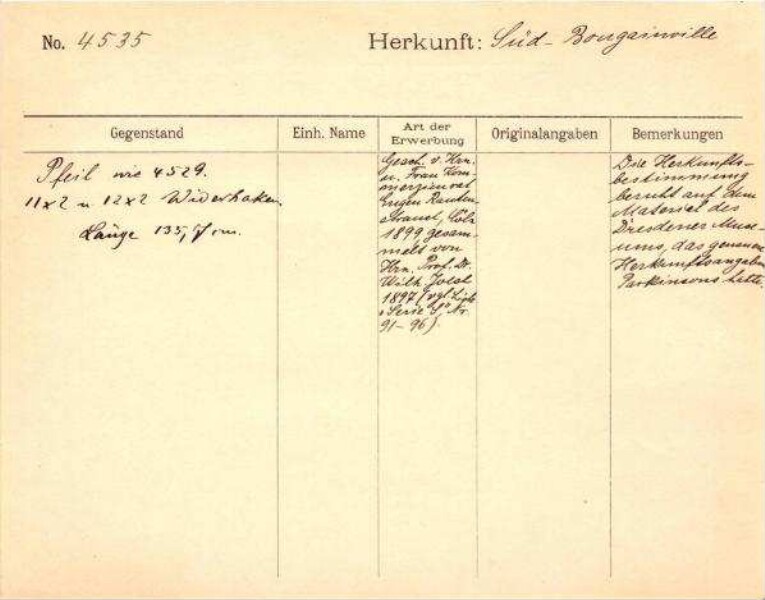 No. 4535
Herkunft: Süd-Bougainville
Gegenstand
Einh. Name
Art der
Erwerbung
Originalangaben
Bemerkungen
Pfeil wie 4529.
11x2 u 12x2 Widerhaken.
Länge 135,7 cm.
Gesch. v. Hrn.
u. Frau Kom-
merzienrat
Eugen Rauten-
strauch, Cöln
1899 gesam-
melt von
Hrn. Prof. Dr.
Wilh. Joest
1897 (vgl.
"Serie S" Nr.
91-96).
Die Herkunfts-
bestimmung
beruht auf dem
Material des
Dresdener Muse-
ums, das genauere
Herkunftsangaben
Parkinsons hatte.